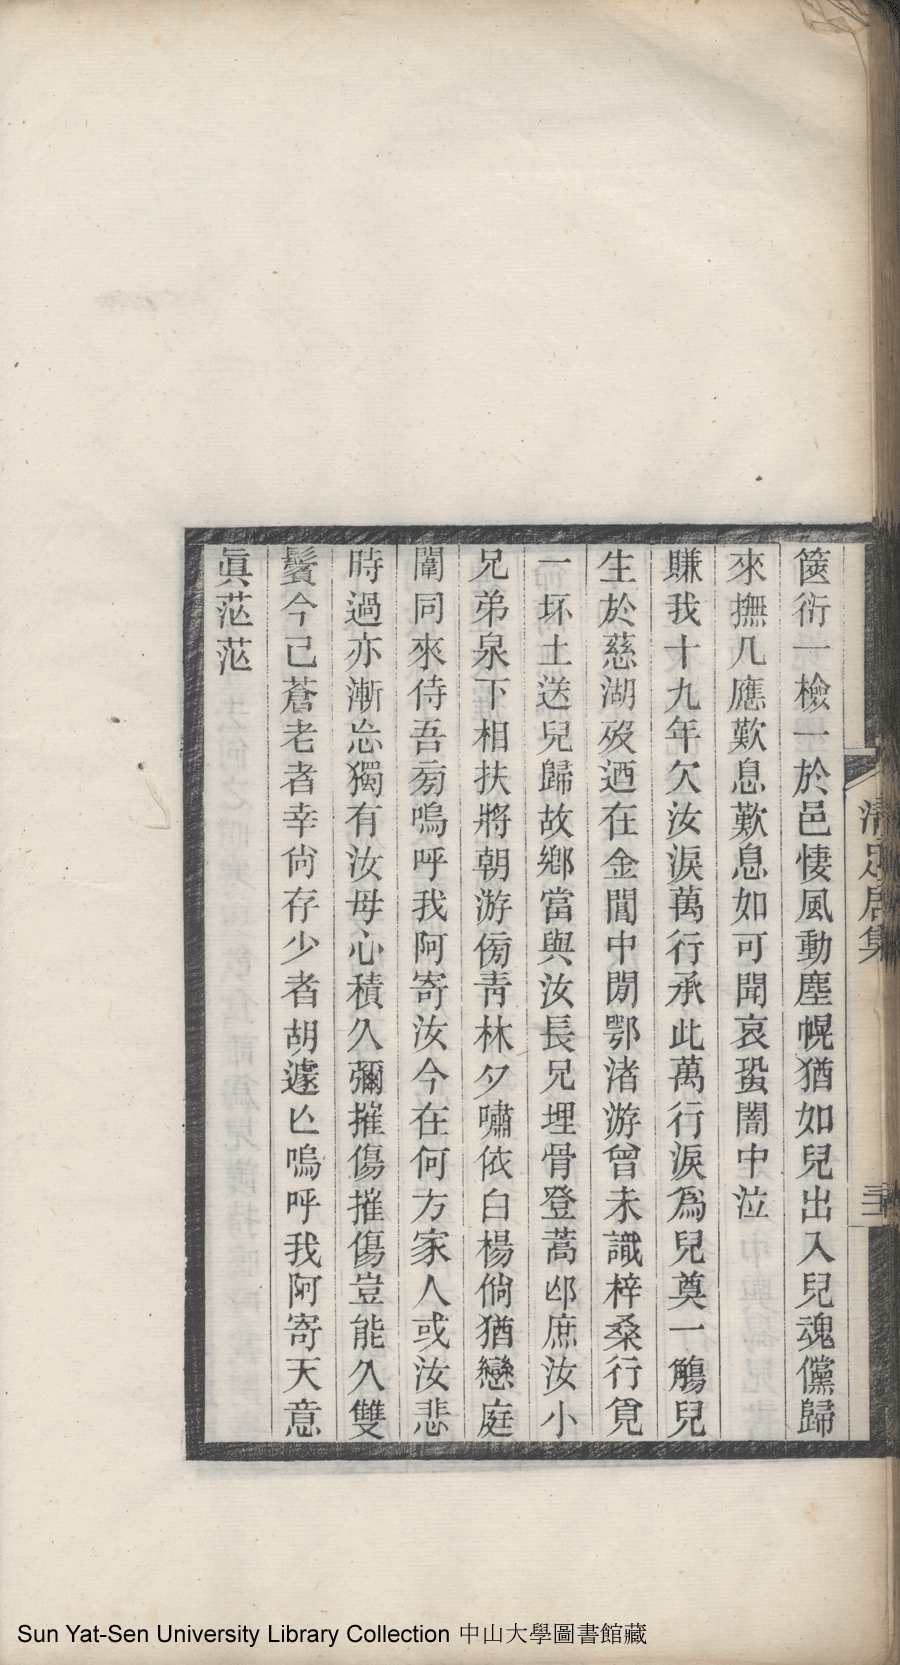 篋衍一檢一於邑悽風動塵幌猶如兒出入兒魂儻歸
來撫几應歎息歎息如可聞哀蛩闇中泣
賺我十九年欠汝淚萬行承此萬行淚爲兒奠一觴兒
生於慈湖歿迺在金閶中閒鄂渚游曾未識梓桑行覓
一坏土送兒歸故鄉當與汝長兄埋骨登蒿邙庶汝小
兄弟泉下相扶將朝游傍靑林夕嘯依白楊倘猶戀庭
闈同來侍吾旁嗚呼我阿寄汝今在何方家人或汝悲
時過亦漸忘獨有汝母心積久彌摧傷摧傷豈能久雙
鬢今已蒼老者幸尙存少者胡遽亾嗚呼我阿寄天意
眞茫茫
淸足居集
Sun Yat-Sen University Library Collection 中山大學圖書館藏